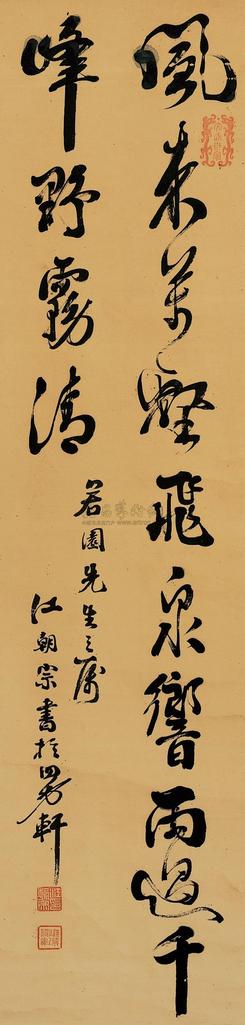 風來萬壑飛泉響雨過千
峰野霧清
若園先生之屬
江朝宗書於四勿軒